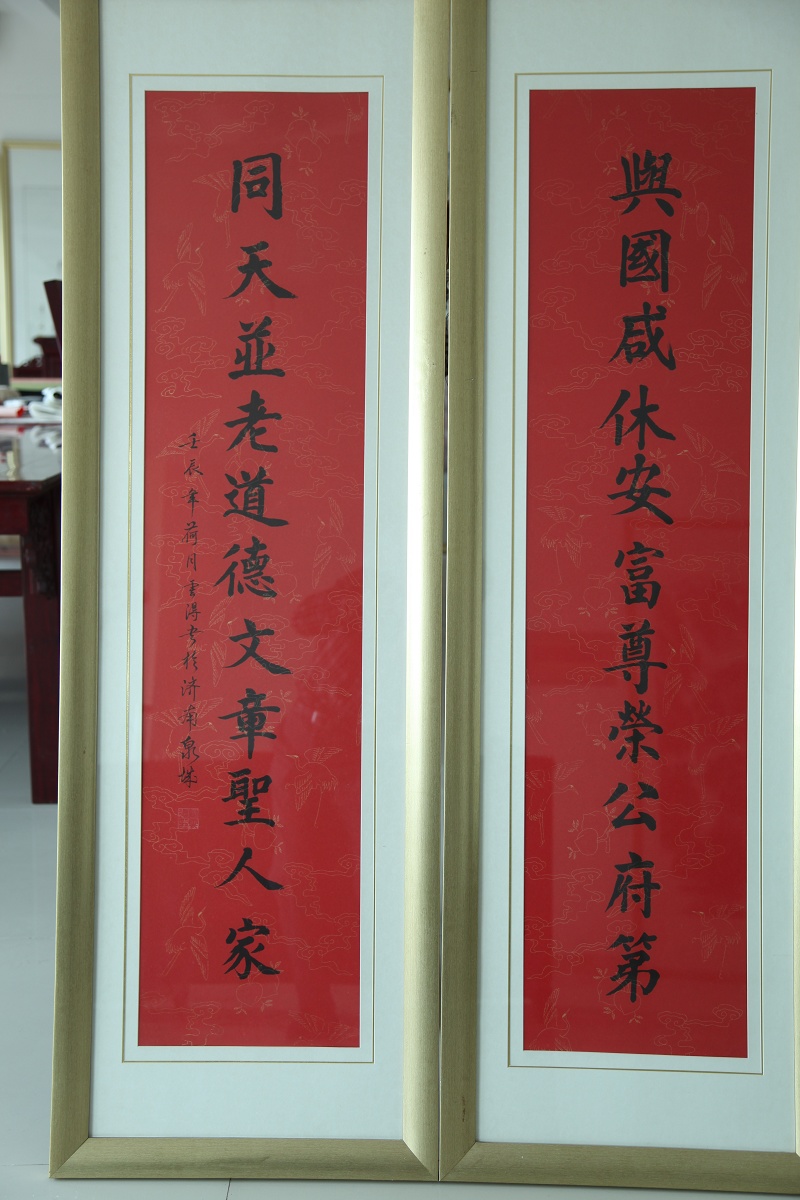 與國咸休安富尊榮公府第
同天並老道德文章聖人家
壬辰年荷月雲得書於济南泉城